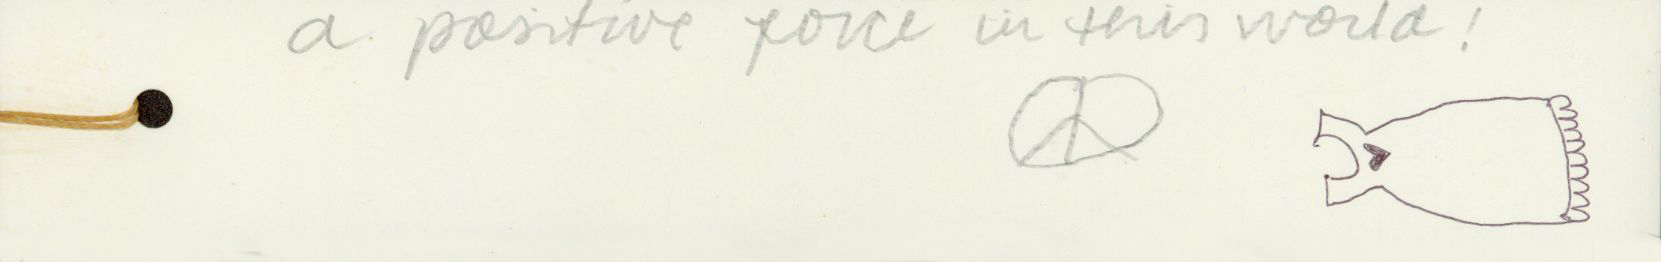 a positive force in this world!